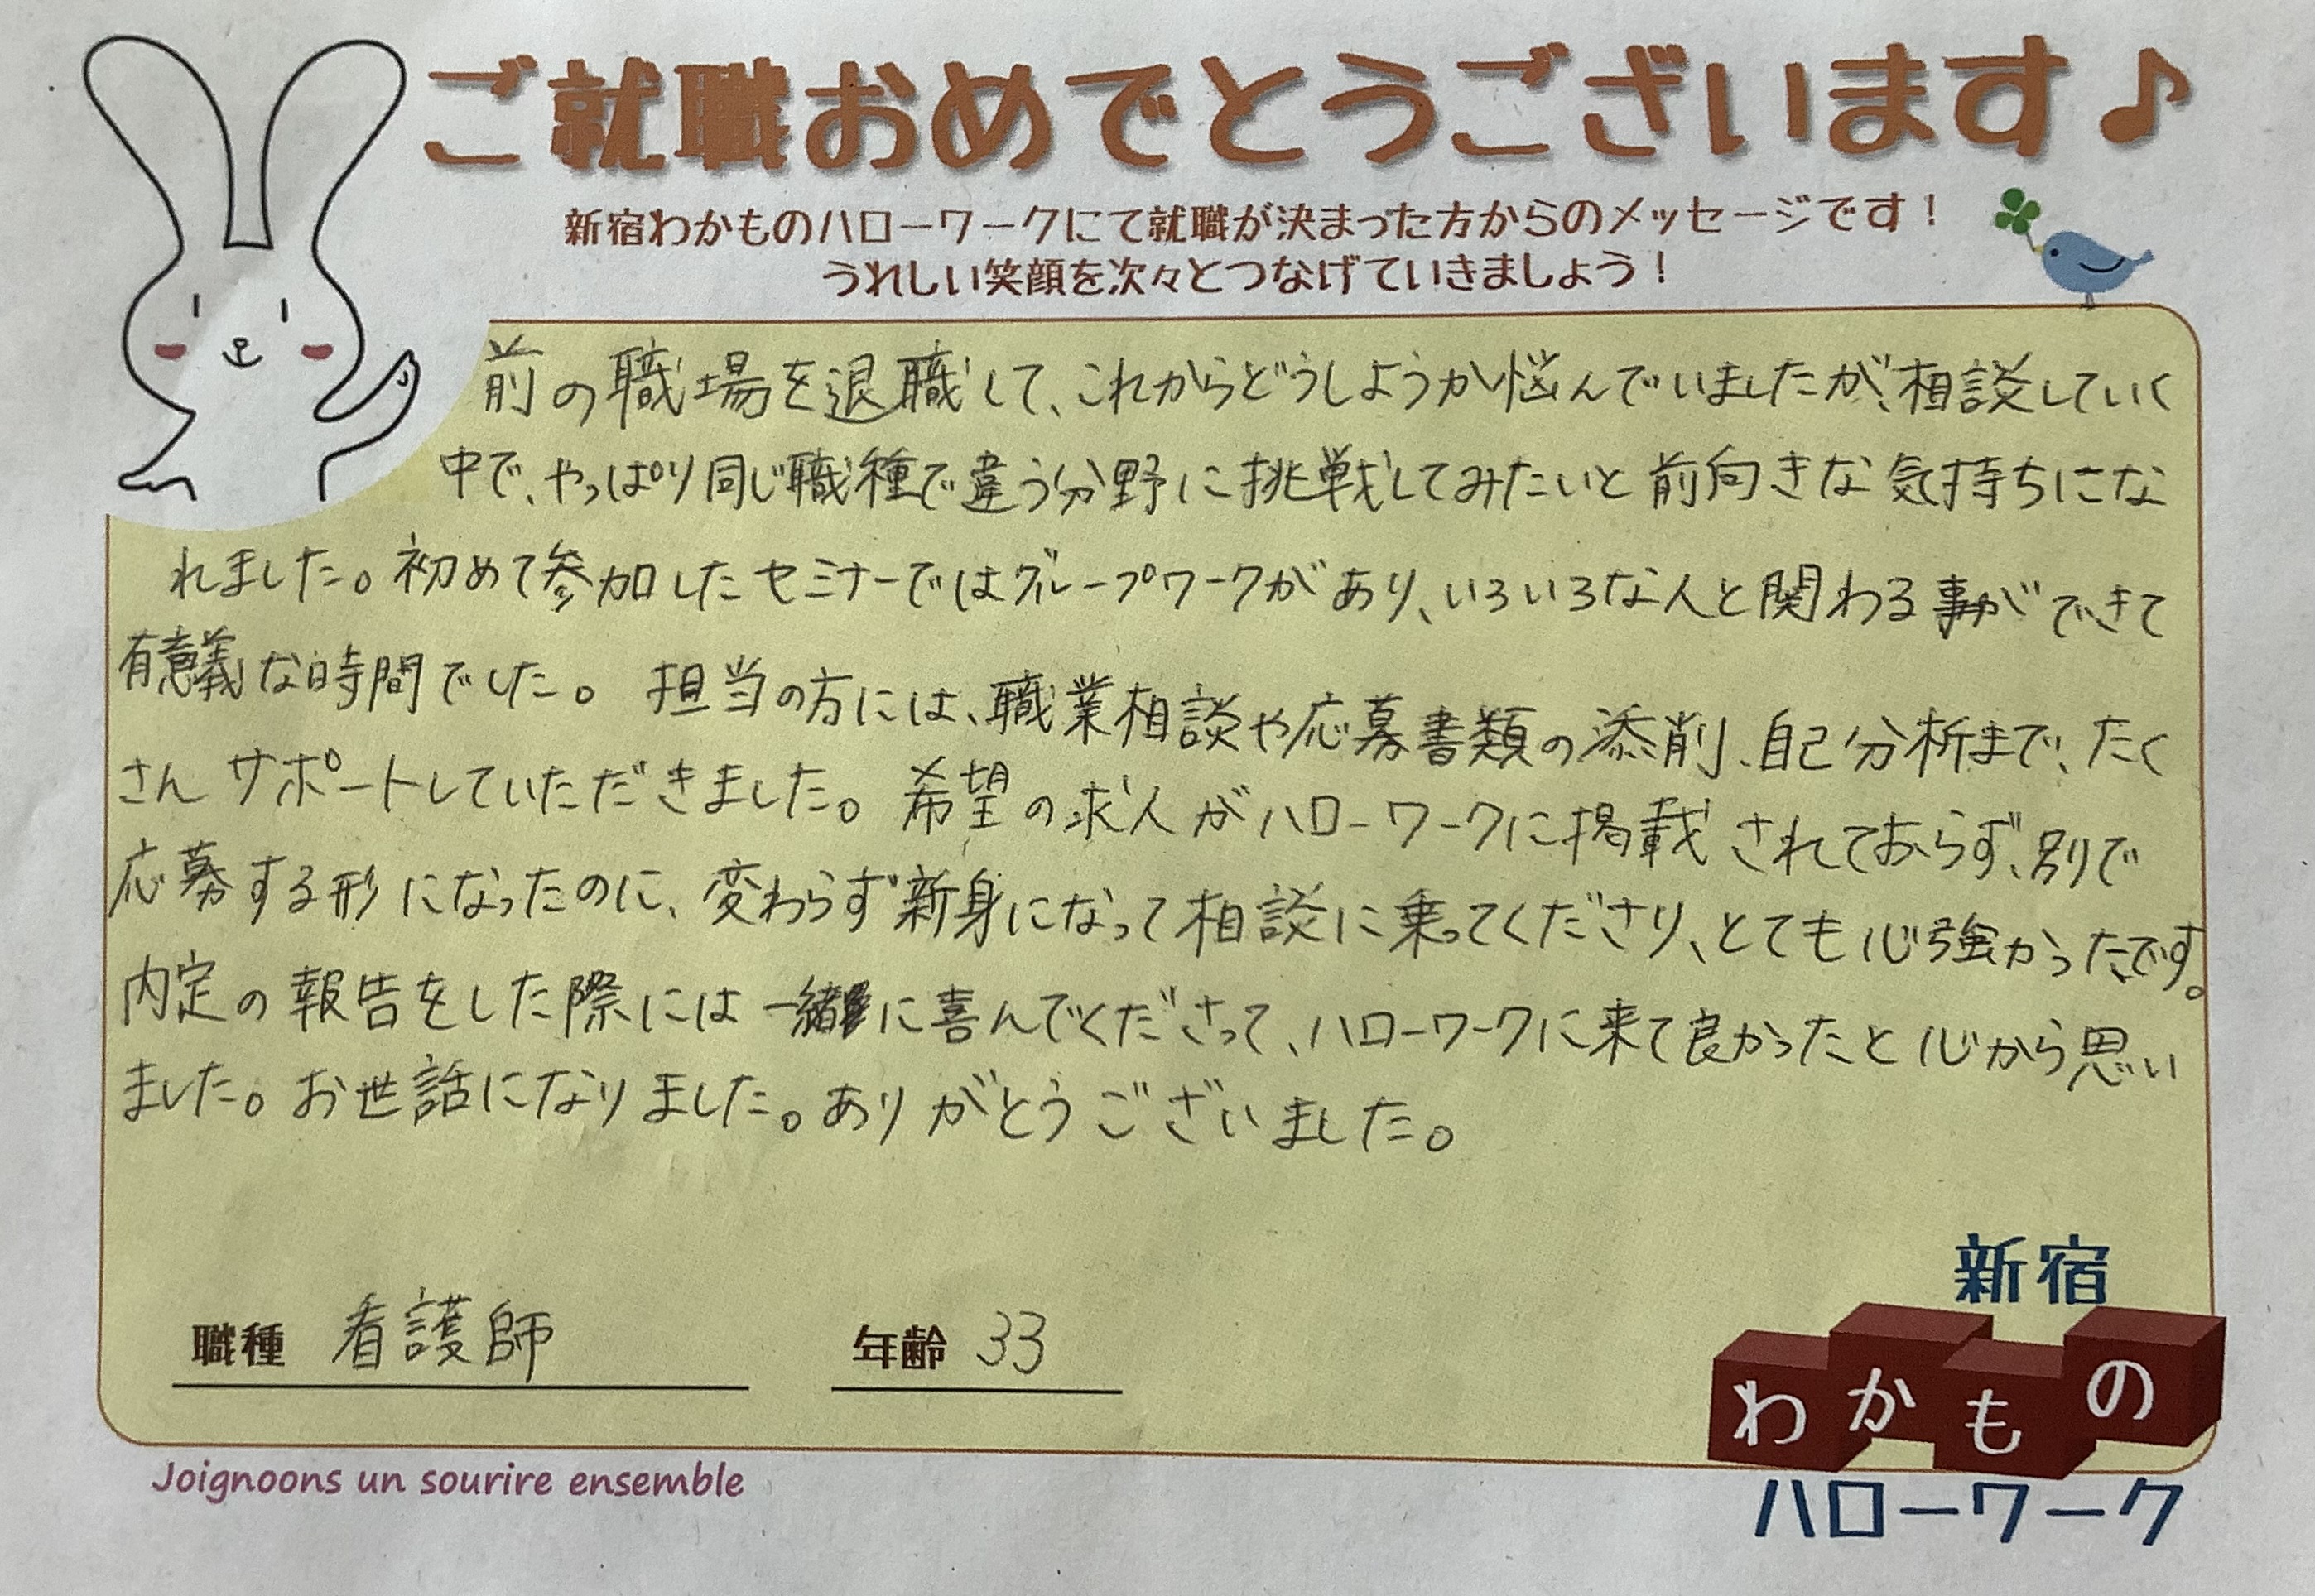 ご就職おめでとうございます♪
新宿わかものハローワークにて就職が決まった方からのメッセージです！
うれしい笑顔を次々とつなげていきましょう！
前の職場を退職して、これからどうしようか悩んでいましたが、相談していく
中で、やっぱり同じ職種で違う分野に挑戦してみたいと前向きな気持ちにな
れました。初めて参加したセミナーではグループワークがあり、いろいろな人と関わる事ができて
有意義な時間でした。担当の方には、職業相談や応募書類の添削、自己分析まで、たく
さんサポートしていただきました。希望の求人がハローワークに掲載されておらず、別で
応募する形になったのに、変わらず新身になって相談に乗ってくださり、とても心強かったです。
内定の報告をした際には一緒に喜んでくださって、ハローワークに来て良かったと心から思い
ました。お世話になりました。ありがとうございました。
職種 看護師 年齢 33
Joignoons un sourire ensemble
新宿
わかもの
ハローワーク